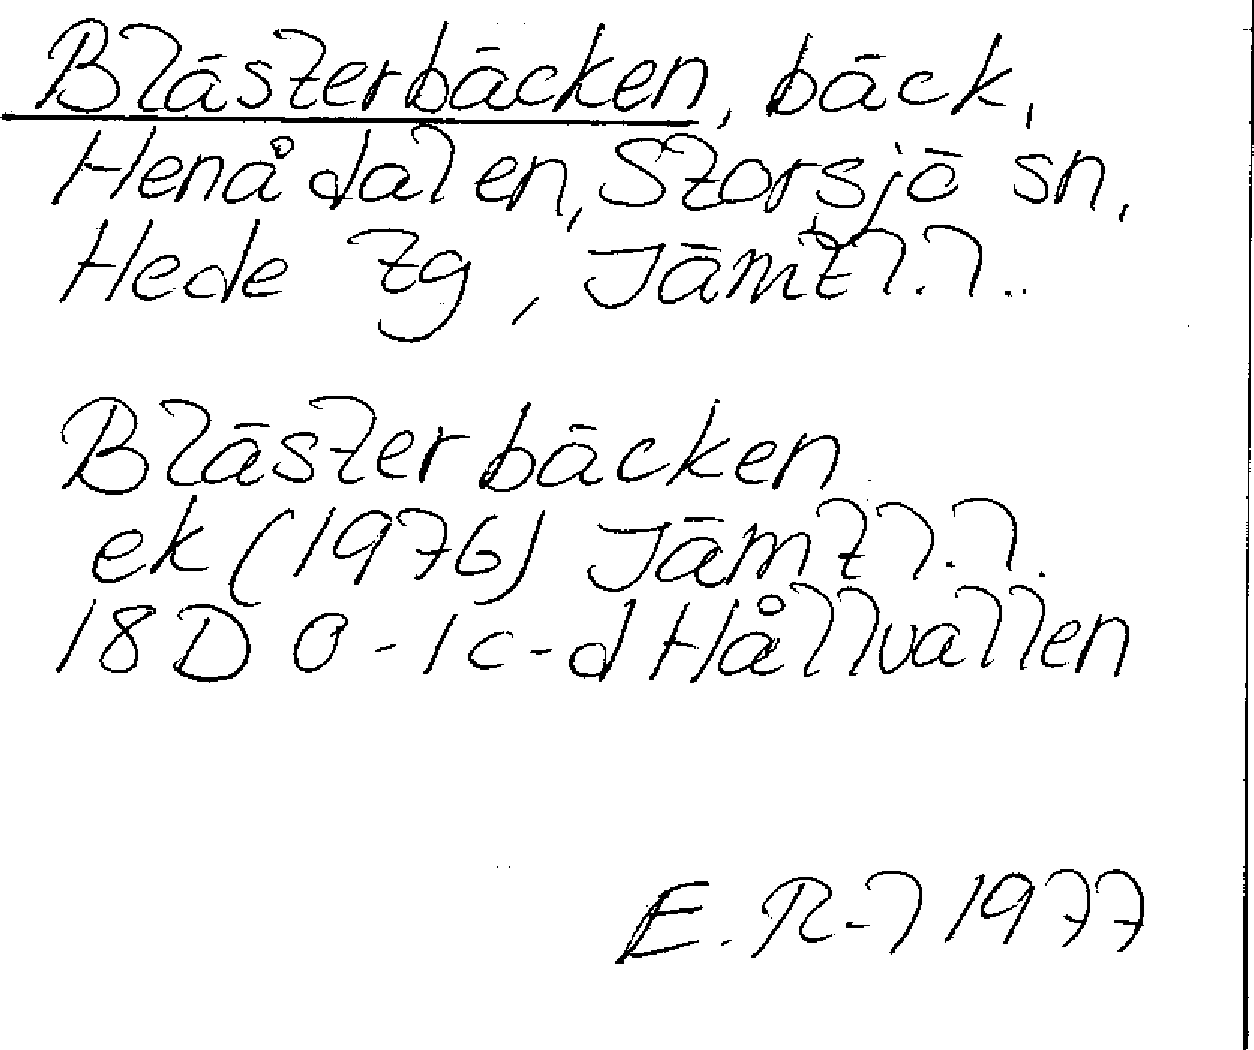 Blästerbäcken, bäck,
Henådalen, Storsjö sn,
Hede tg, Jämtl.l..
Blästerbäcken
ek (1976) Jämtl.l.
18D 0-1c-d Hållvallen
E. R-l 1977